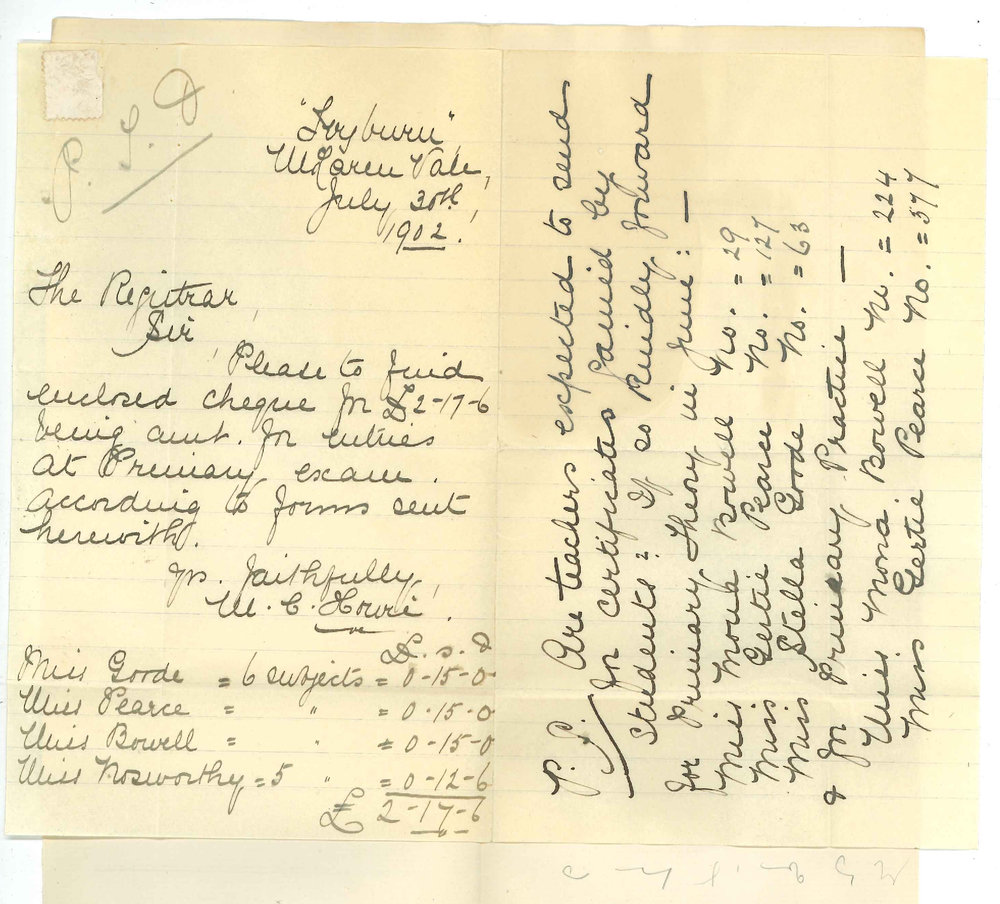 P. L. D
"Ivyburn",
McLaren Vale,
July 30th,
1902.
The Registrar,
Sir,
Please to find
enclosed cheque for £2-17-6
being amt. for entries
at Primary exam.
according to forms sent
herewith.
Yrs. faithfully,
M. C. Howie.
£. s. d
Miss Goode = 6 subjects = 0-15-0
Miss Pearce = " = 0-15-0
Miss Bowell = " = 0-15-0
Miss Nosworthy = 5 " = 0-12-6
£ 2-17-6
P.S. Are teachers expected to send
for certificates gained by
students? If so kindly forward
for Primary Theory in June: —
Miss Mona Bowell No. = 29
Miss Gertie Pearce No. = 127
Miss Stella Goode No. = 63
& for Primary Practice —
Miss Mona Bowell No. = 224
Miss Gertie Pearce No. = 577